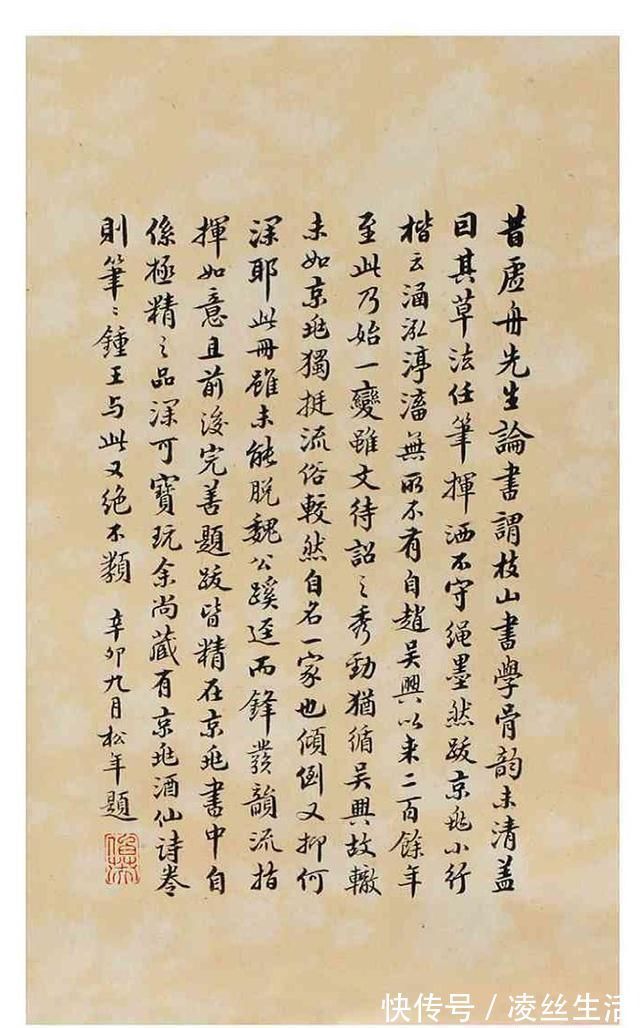 昔虚舟先生論書謂枝山書學骨韵未清盖
因其草法任筆揮洒不守绳墨然跋京兆小行
楷云涵泓渟滀無所不有自趙吳興以来二百餘年
至此乃始一變雖文待詔之秀勁猶循吳興故轍
未如京兆獨挺流俗較然自名一家也傾倒又抑何
深耶此冊雖未能脱魏公蹊逕而鋒發韻流指
揮如意且前後完善題跋皆精在京兆書中自
係極精之品深可寶玩余尚藏有京兆酒仙诗卷
則筆〻鍾王与此又绝不類 辛卯九月松年題
快传号／凌丝生活